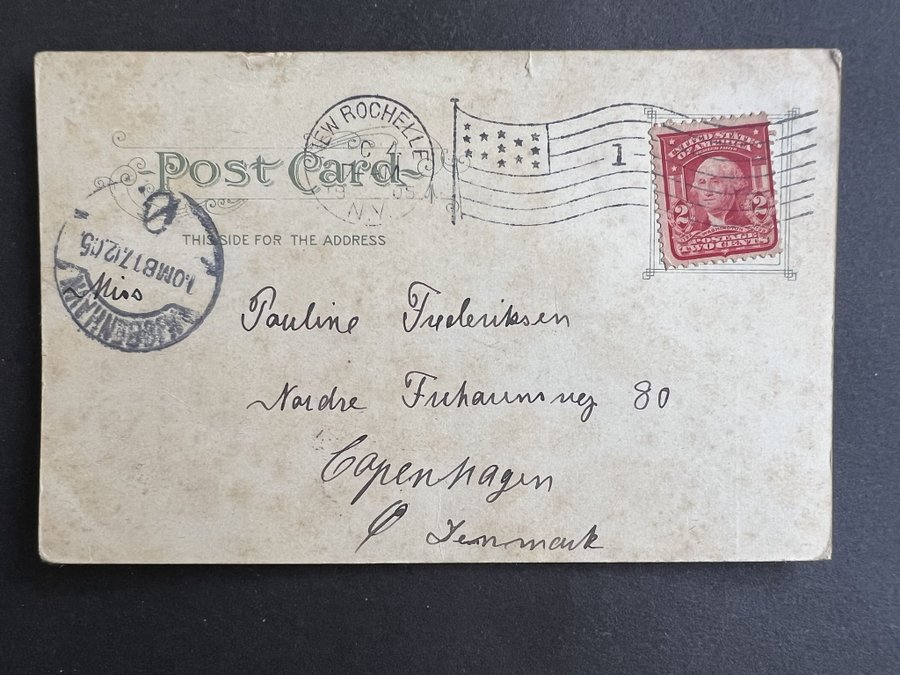 Post Card
THIS SIDE FOR THE ADDRESS
NEW ROCHELLE
N.Y.
1
UNITED STATES
OF AMERICA
2 2
POSTAGE
TWO CENTS
KJØBENHAVN
1.OMB 17.12.05
Ø.
Miss
Pauline Frederiksen
Nordre Frihavnsvej 80
Copenhagen
Ø Denmark